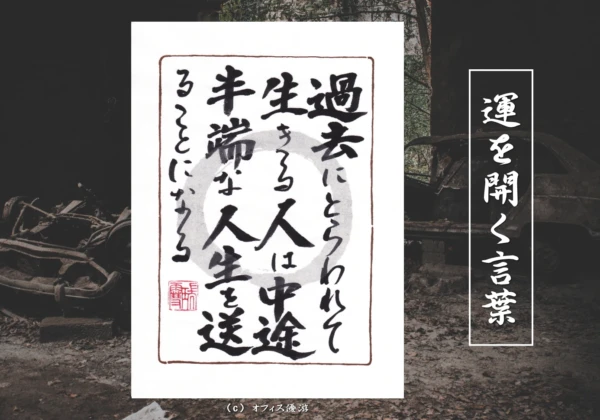 運を開く言葉
過去にとらわれて
生きる人は中途
半端な人生を送
ることになる
(c) オフィス優游